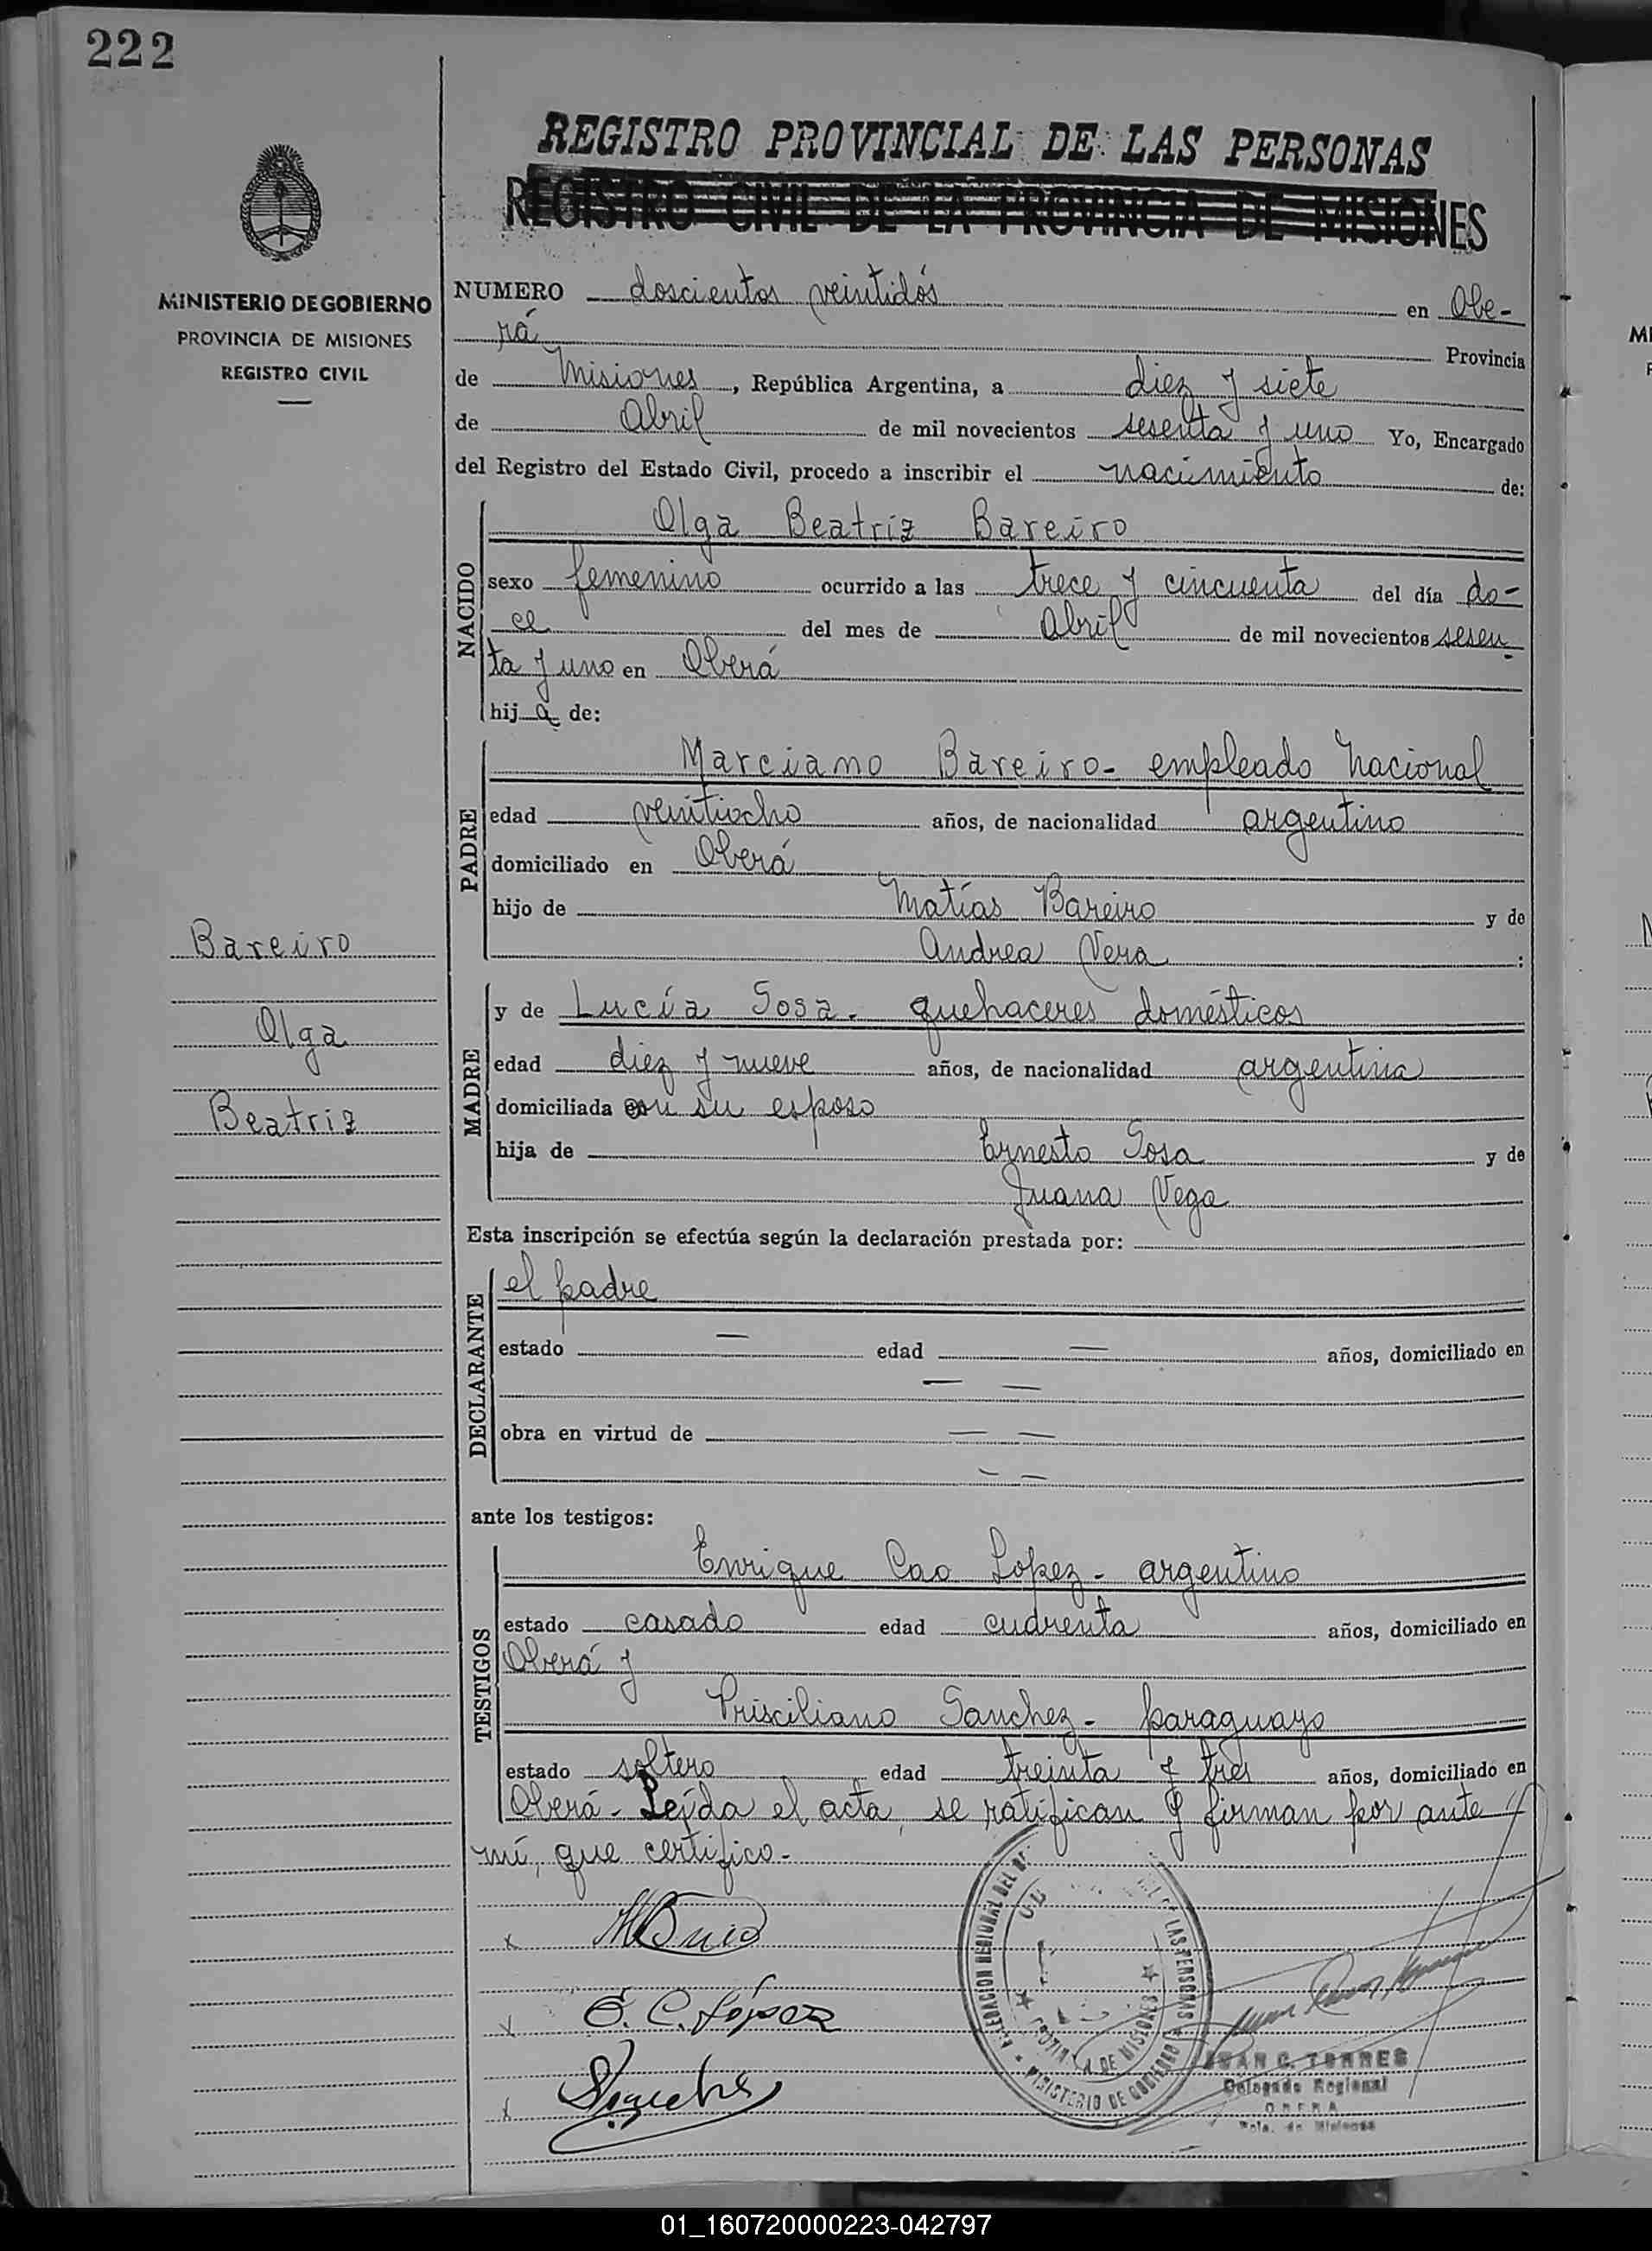 222
REGISTRO PROVINCIAL DE LAS PERSONAS
REGISTRO CIVIL DE LA PROVINCIA DE MISIONES
MINISTERIO DE GOBIERNO
PROVINCIA DE MISIONES
REGISTRO CIVIL
NUMERO doscientos veintidós en Obe-
rá Provincia
de Misiones, República Argentina, a diez y siete
de Abril de mil novecientos sesenta y uno Yo, Encargado
del Registro del Estado Civil, procedo a inscribir el nacimiento de:
NACIDO
Olga Beatríz Bareiro
sexo femenino ocurrido a las trece y cincuenta del día do-
ce del mes de Abril de mil novecientos sesen
ta y uno en Oberá
hij a de:
PADRE
Marciano Bareiro- empleado Nacional
edad veintiocho años, de nacionalidad argentino
domiciliado en Oberá
hijo de Matías Bareiro y de
Andrea Vera :
Bareiro
Olga
Beatriz
MADRE
y de Lucía Sosa. quehaceres domésticos
edad diez y nueve años, de nacionalidad argentina
domiciliada con su esposo
hija de Ernesto Sosa y de
Juana Vega
Esta inscripción se efectúa según la declaración prestada por:
DECLARANTE
el padre
estado — edad — años, domiciliado en
— —
obra en virtud de — —
— —
ante los testigos:
TESTIGOS
Enrique Cao Lopez- argentino
estado casado edad cuarenta años, domiciliado en
Oberá y
Prisciliano Sanchez- paraguayo
estado soltero edad treinta y tres años, domiciliado en
Oberá- Leída el acta, se ratifican y firman por ante
mí, que certifico.-
x
x E. C. López
x Sanchez
DELEGACION REGIONAL DEL
LAS PERSONAS
MINISTERIO DE GOBIERNO
DE MISIONES
JUAN C. TORRES
Delegado Regional
OBERA
Pcia. de Misiones
01_160720000223-042797